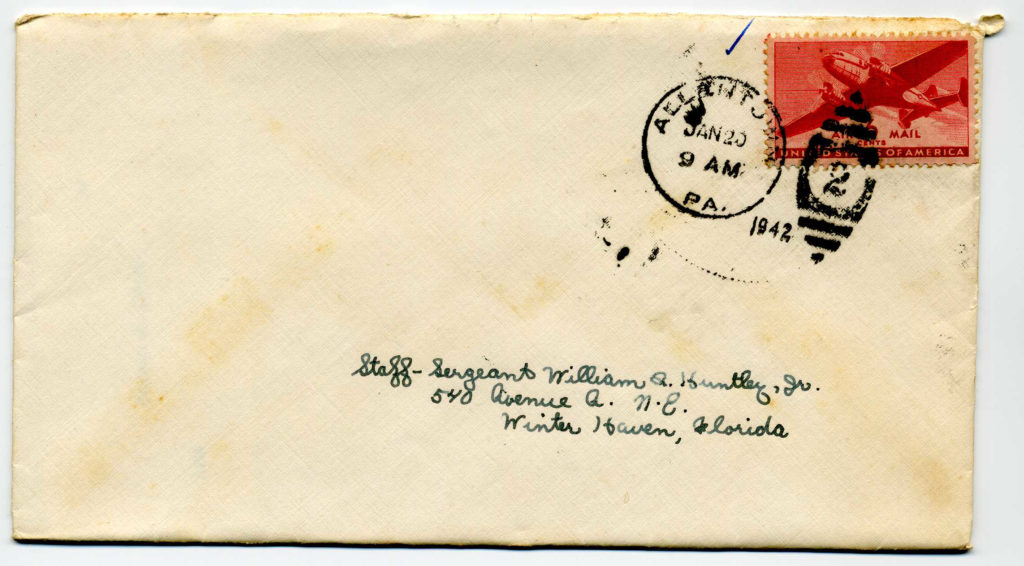 ALLENTOWN
JAN 20
9 AM
PA.
1942
2
AIR MAIL
CENTS
UNITED STATES OF AMERICA
Staff-Sergeant William A. Huntley, Jr.
540 Avenue A. N.E.
Winter Haven, Florida